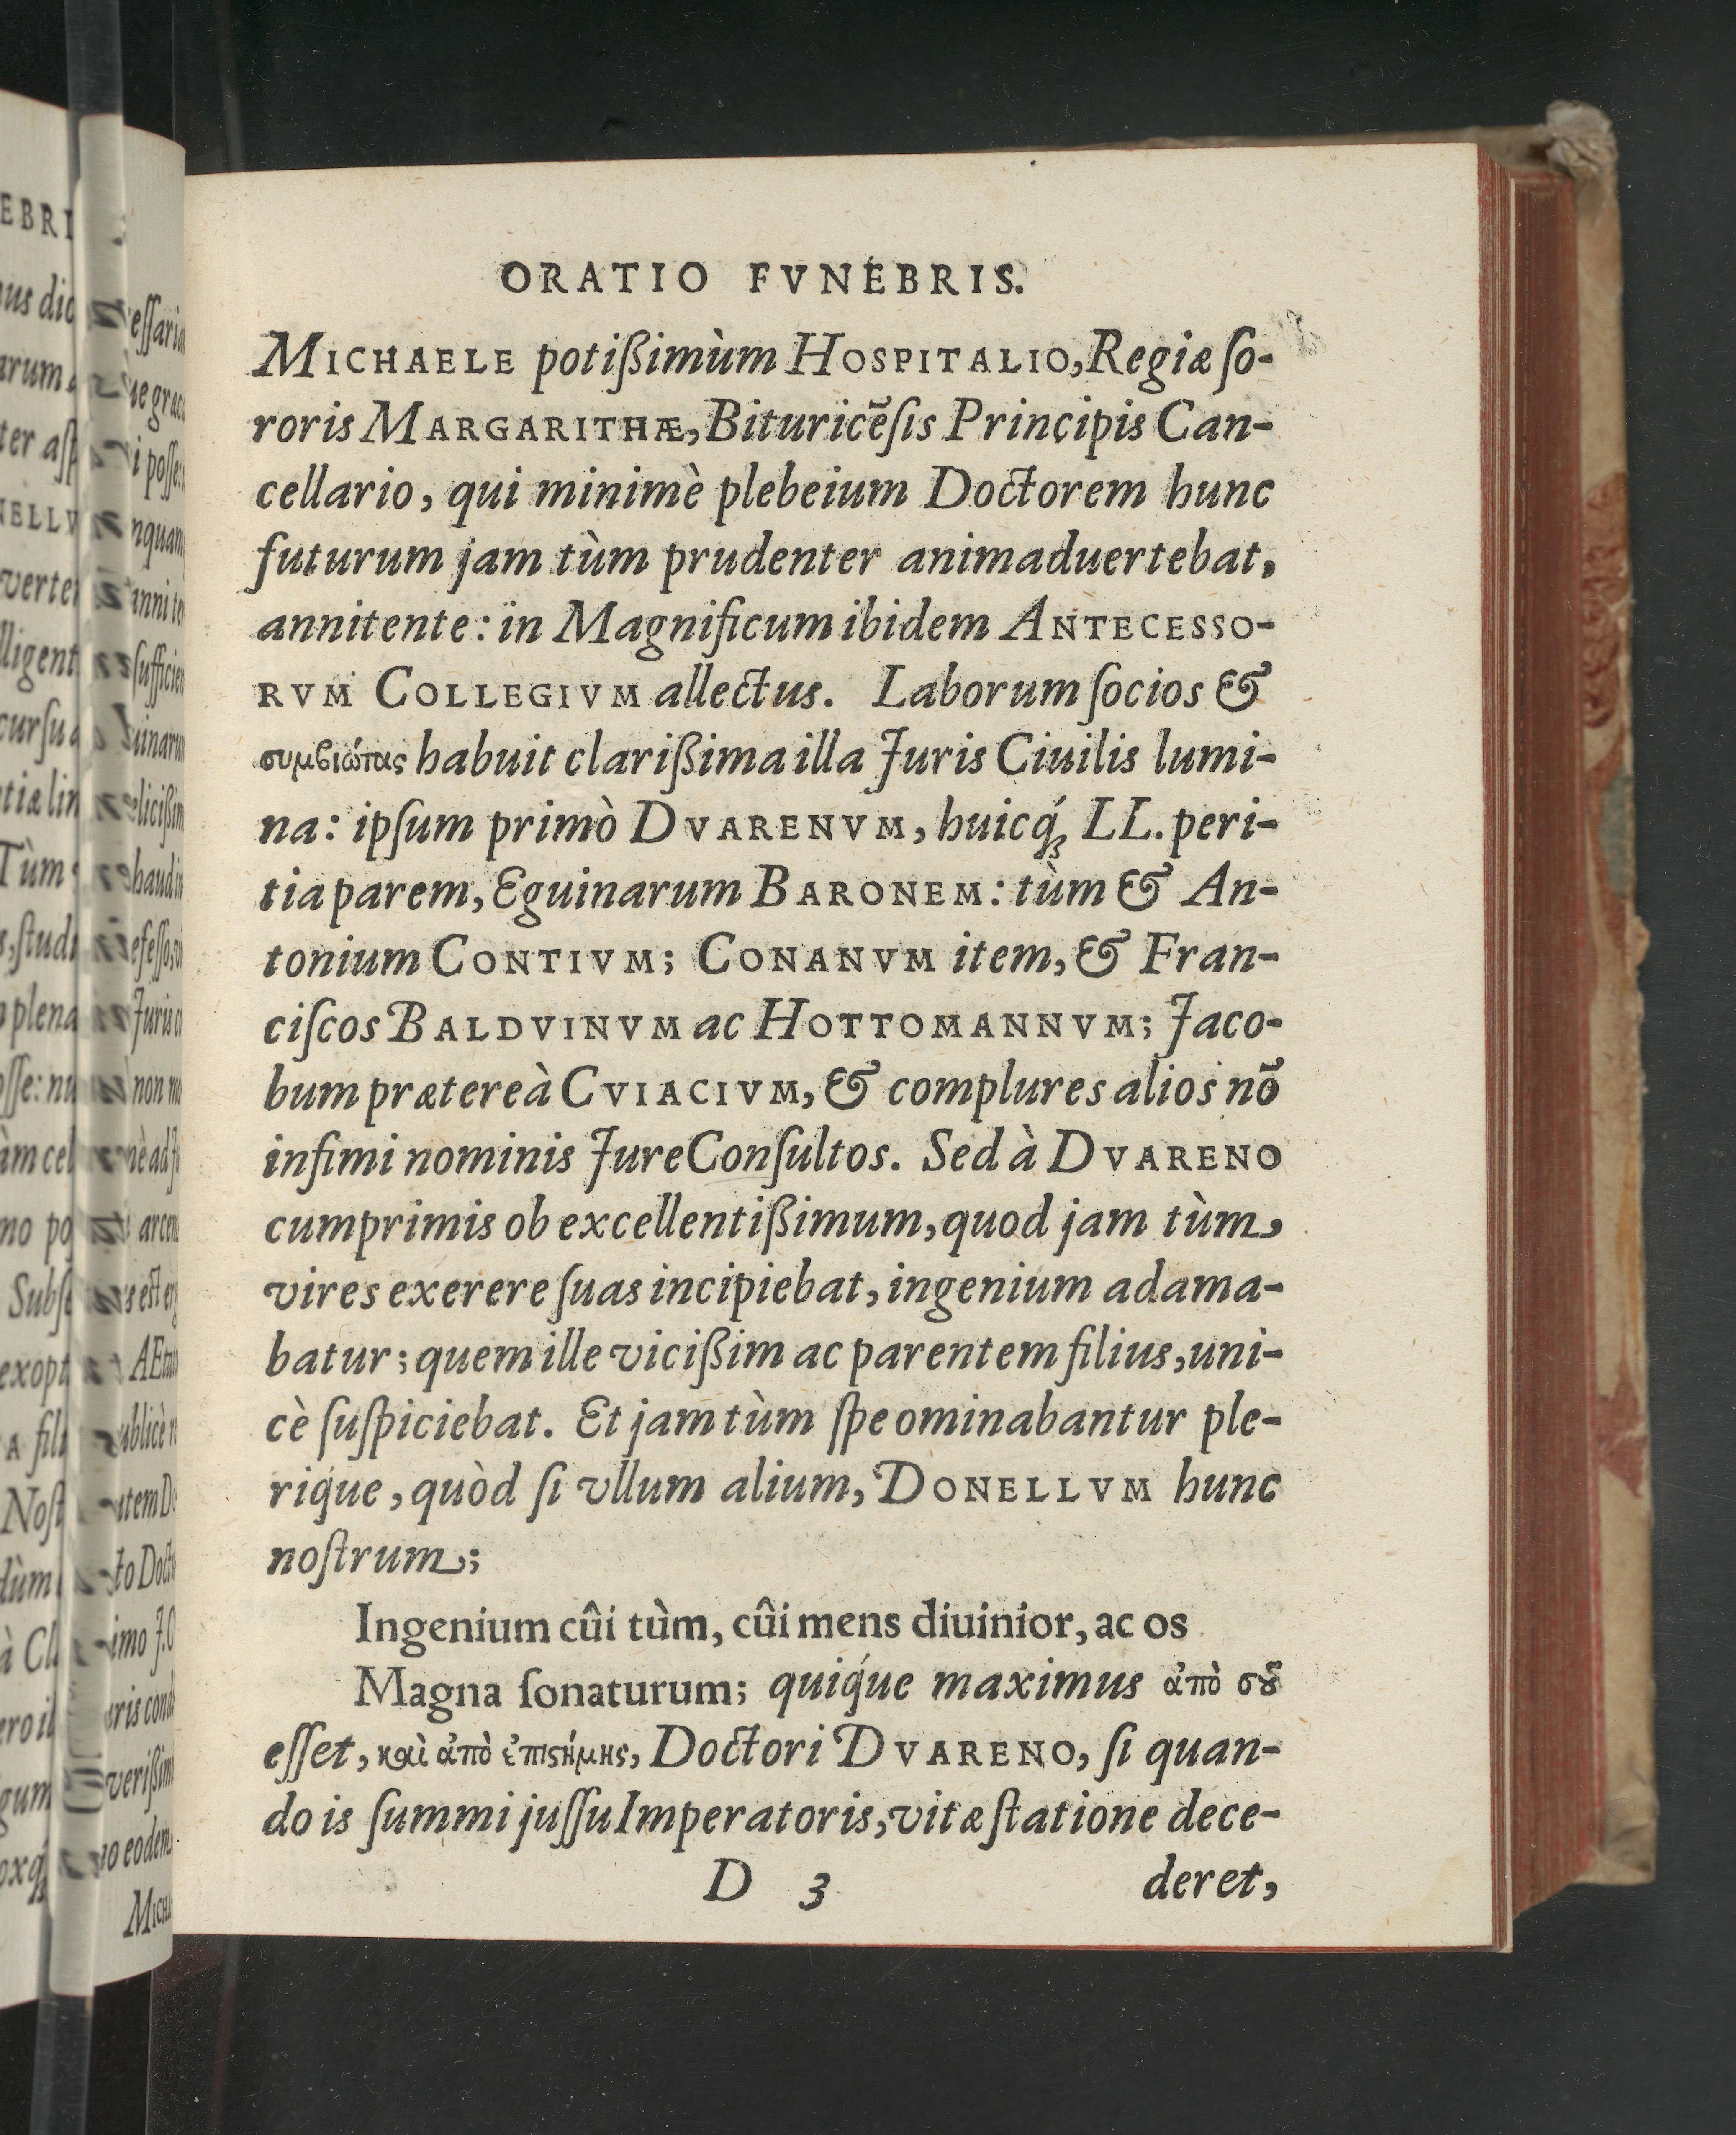 ORATIO FVNEBRIS.
MICHAELE potißimùm HOSPITALIO, Regiæ ſo-
roris MARGARITHÆ, Bituricẽſis Principis Can-
cellario, qui minimè plebeium Doctorem hunc
futurum jam tùm prudenter animaduertebat,
annitente: in Magnificum ibidem ANTECESSO-
RVM COLLEGIVM allectus. Laborum ſocios &
συμβιώτας habuit clarißima illa Juris Ciuilis lumi-
na: ipſum primò DVARENVM, huicq́; LL. peri-
tia parem, Eguinarum BARONEM: tùm & An-
tonium CONTIVM; CONANVM item, & Fran-
ciſcos BALDVINVM ac HOTTOMANNVM; Jaco-
bum prætereà CVIACIVM, & complures alios nõ
infimi nominis JureConſultos. Sed à DVARENO
cumprimis ob excellentißimum, quod jam tùm,
vires exerere ſuas incipiebat, ingenium adama-
batur; quem ille vicißim ac parentem filius, uni-
cè ſuſpiciebat. Et jam tùm ſpe ominabantur ple-
riq́ue, quòd ſi vllum alium, DONELLVM hunc
noſtrum;
Ingenium cûi tùm, cûi mens diuinior, ac os
Magna ſonaturum; quiq́ue maximus ἀπὸ σȣ͂
eſſet, καὶ ἀπὸ ἐπιϛήμης, Doctori DVARENO, ſi quan-
do is ſummi juſſu Imperatoris, vitæ ſtatione dece-
D 3 deret,